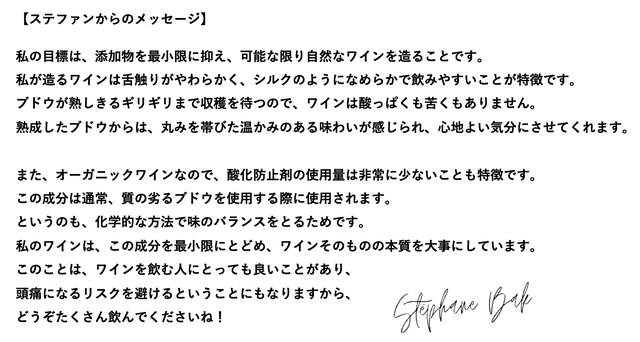 【ステファンからのメッセージ】
私の目標は、添加物を最小限に抑え、可能な限り自然なワインを造ることです。
私が造るワインは舌触りがやわらかく、シルクのようになめらかで飲みやすいことが特徴です。
ブドウが熟しきるギリギリまで収穫を待つので、ワインは酸っぱくも苦くもありません。
熟成したブドウからは、丸みを帯びた温かみのある味わいが感じられ、心地よい気分にさせてくれます。
また、オーガニックワインなので、酸化防止剤の使用量は非常に少ないことも特徴です。
この成分は通常、質の劣るブドウを使用する際に使用されます。
というのも、化学的な方法で味のバランスをとるためです。
私のワインは、この成分を最小限にとどめ、ワインそのものの本質を大事にしています。
このことは、ワインを飲む人にとっても良いことがあり、
頭痛になるリスクを避けるということにもなりますから、
どうぞたくさん飲んでくださいね！
Stéphane Bak